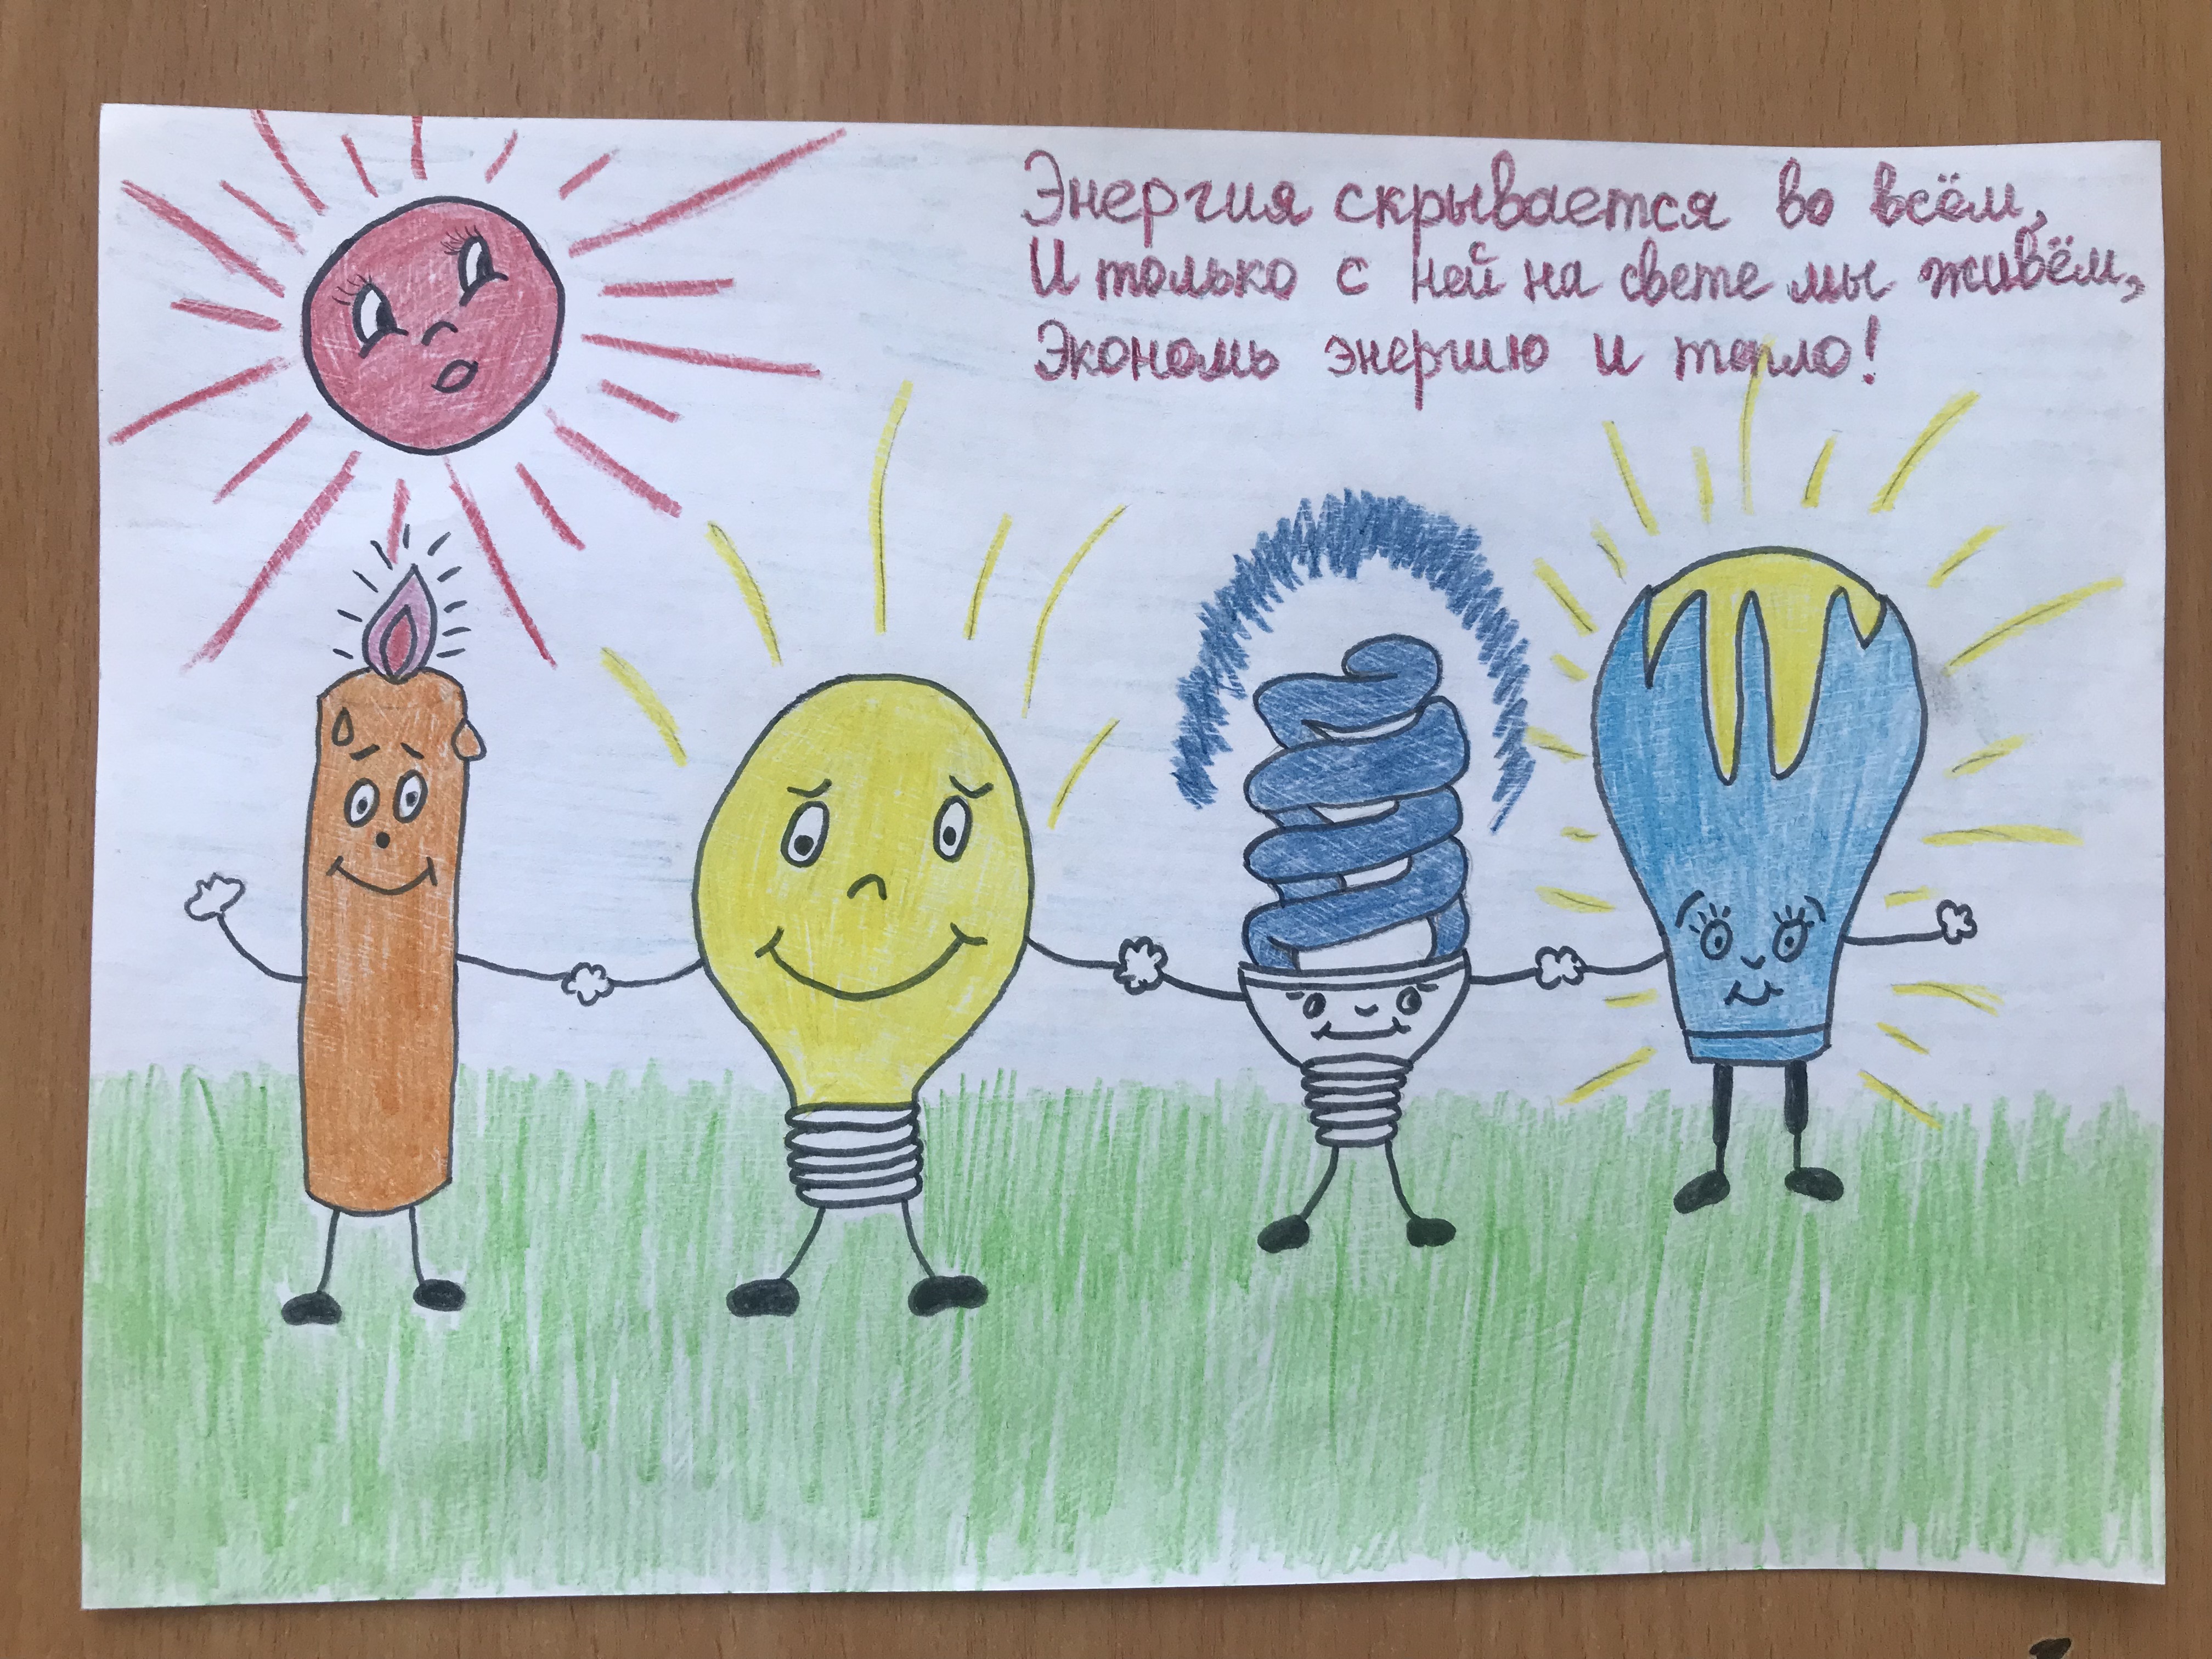 Энергия скрывается во всём,
И только с ней на свете мы живём,
Экономь энергию и тепло!